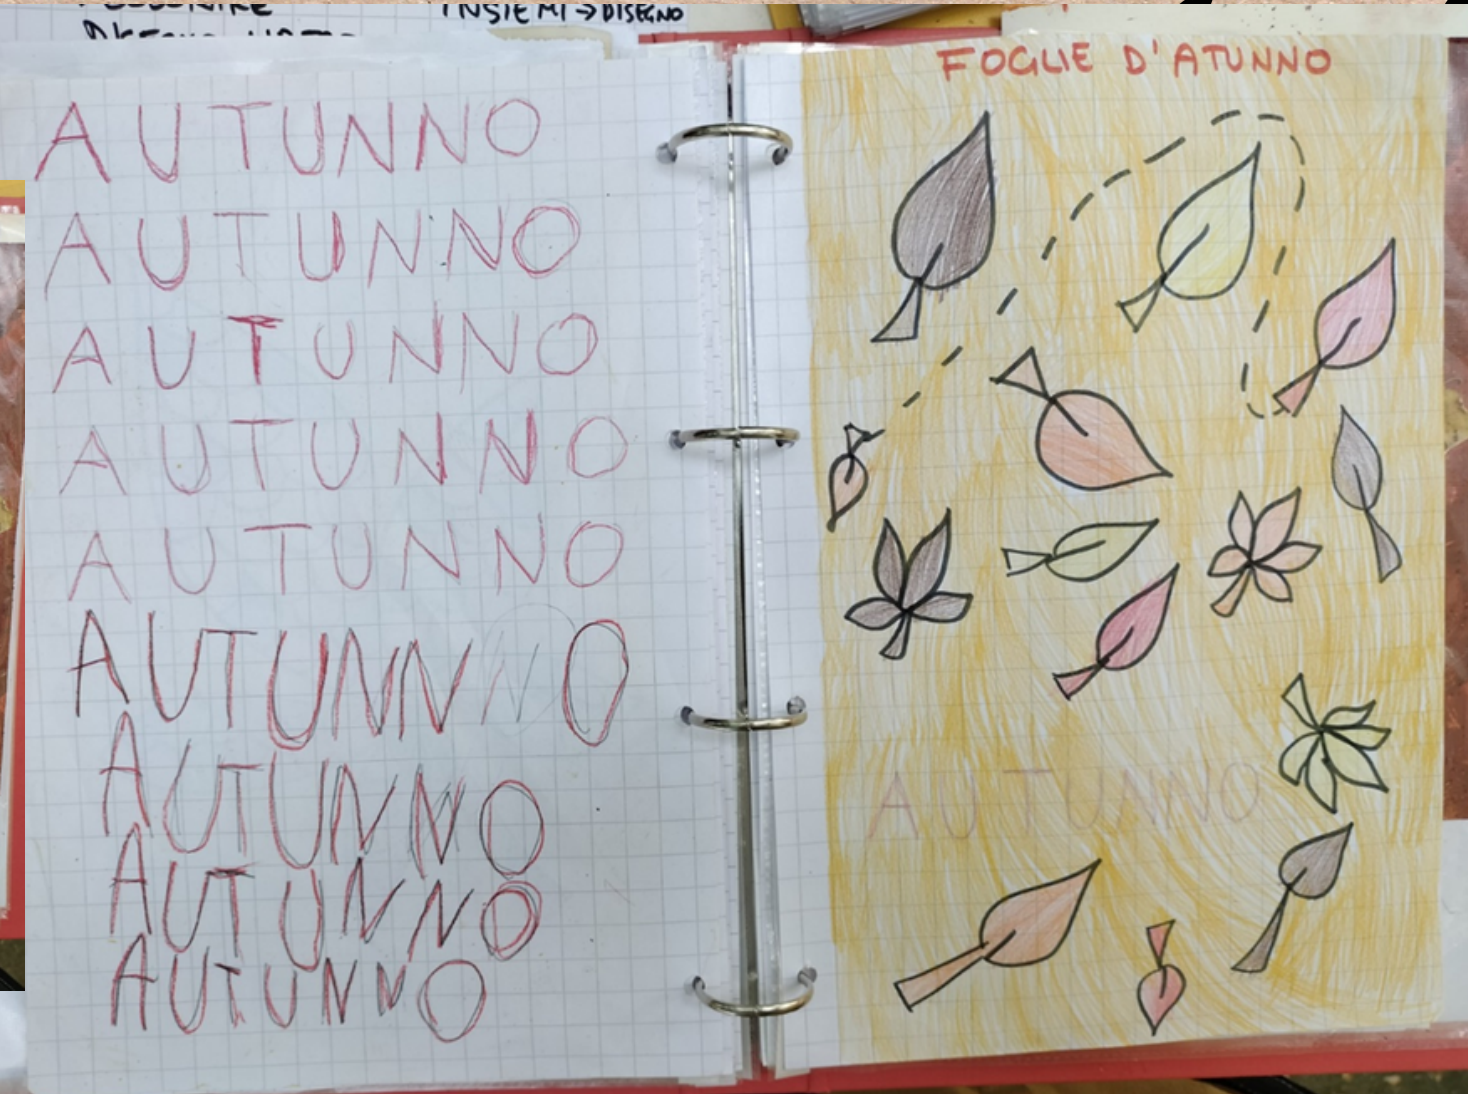 INSIEMI → DISEGNO
AUTUNNO
AUTUNNO
AUTUNNO
AUTUNNO
AUTUNNO
AUTUNNNO
AUTUNNO
AUTUNNO
AUTUNNO
FOGLIE D'ATUNNO
AUTUNNO